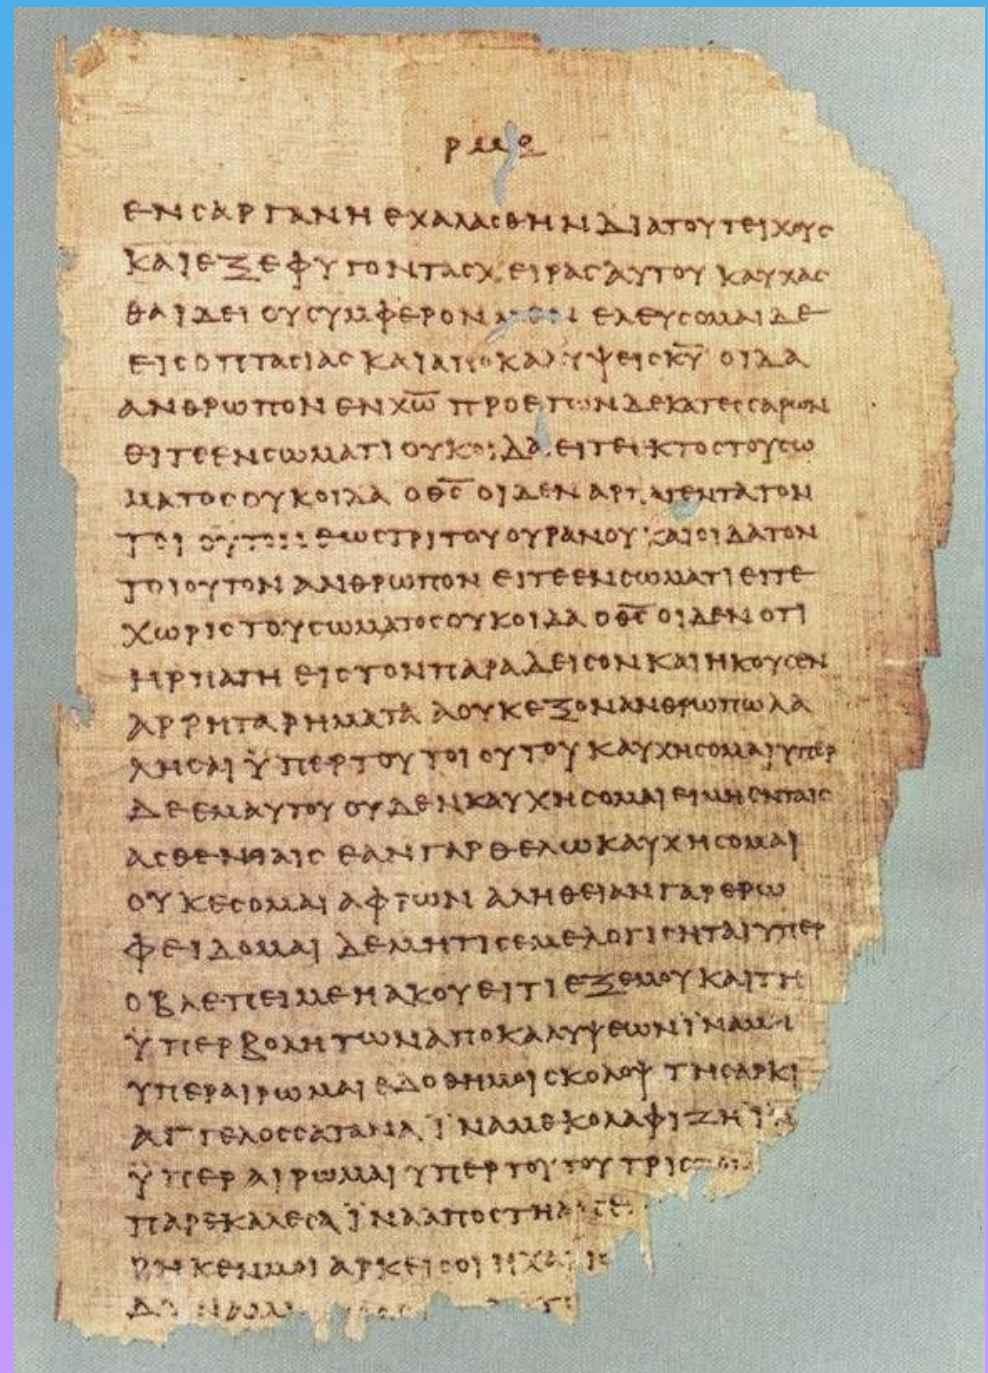 ΡΜΕ
ΕΝϹΑΡΓΑΝΗΕΧΑΛΑϹΘΗΝΔΙΑΤΟΥΤΕΙΧΟΥϹ
ΚΑΙΕΞΕΦΥΓΟΝΤΑϹΧΕΙΡΑϹΑΥΤΟΥΚΑΥΧΑϹ
ΘΑΙΔΕΙΟΥϹΥΜΦΕΡΟΝΜΕΝΕΛΕΥϹΟΜΑΙΔΕ
ΕΙϹΟΠΤΑϹΙΑϹΚΑΙΑΠΟΚΑΛΥΨΕΙϹΚ̅Υ̅ΟΙΔΑ
ΑΝΘΡΩΠΟΝΕΝΧ̅Ω̅ΠΡΟΕΤΩΝΔΕΚΑΤΕϹϹΑΡΩΝ
ΕΙΤΕΕΝϹΩΜΑΤΙΟΥΚΟΙΔΑΕΙΤΕΕΚΤΟϹΤΟΥϹΩ
ΜΑΤΟϹΟΥΚΟΙΔΑΟΘ̅Ϲ̅ΟΙΔΕΝΑΡΠΑΓΕΝΤΑΤΟΝ
ΤΟΙΟΥΤΟΝΕΩϹΤΡΙΤΟΥΟΥΡΑΝΟΥΚΑΙΟΙΔΑΤΟΝ
ΤΟΙΟΥΤΟΝΑΝΘΡΩΠΟΝΕΙΤΕΕΝϹΩΜΑΤΙΕΙΤΕ
ΧΩΡΙϹΤΟΥϹΩΜΑΤΟϹΟΥΚΟΙΔΑΟΘ̅Ϲ̅ΟΙΔΕΝΟΤΙ
ΗΡΠΑΓΗΕΙϹΤΟΝΠΑΡΑΔΕΙϹΟΝΚΑΙΗΚΟΥϹΕΝ
ΑΡΡΗΤΑΡΗΜΑΤΑΑΟΥΚΕΞΟΝΑΝΘΡΩΠΩΛΑ
ΛΗϹΑΙΫΠΕΡΤΟΥΤΟΙΟΥΤΟΥΚΑΥΧΗϹΟΜΑΙΥΠΕΡ
ΔΕΕΜΑΥΤΟΥΟΥΔΕΝΚΑΥΧΗϹΟΜΑΙΕΙΜΗΕΝΤΑΙϹ
ΑϹΘΕΝΕΙΑΙϹΕΑΝΓΑΡΘΕΛΩΚΑΥΧΗϹΟΜΑΙ
ΟΥΚΕϹΟΜΑΙΑΦΡΩΝΑΛΗΘΕΙΑΝΓΑΡΕΡΩ
ΦΕΙΔΟΜΑΙΔΕΜΗΤΙϹΕΜΕΛΟΓΙϹΗΤΑΙΥΠΕΡ
ΟΒΛΕΠΕΙΜΕΗΑΚΟΥΕΙΤΙΕΞΕΜΟΥΚΑΙΤΗ
ΫΠΕΡΒΟΛΗΤΩΝΑΠΟΚΑΛΥΨΕΩΝΪΝΑΜΗ
ΥΠΕΡΑΙΡΩΜΑΙΕΔΟΘΗΜΟΙϹΚΟΛΟΨΤΗϹΑΡΚΙ
ΑΓΓΕΛΟϹϹΑΤΑΝΑΪΝΑΜΕΚΟΛΑΦΙΖΗΪ
ΫΠΕΡΑΙΡΩΜΑΙΥΠΕΡΤΟΥΤΟΥΤΡΙϹ
ΠΑΡΕΚΑΛΕϹΑΪΝΑΑΠΟϹΤΗ
ΡΗΚΕΝΜΟΙΑΡΚΕΙϹΟΙΗΧΑΡΙϹ